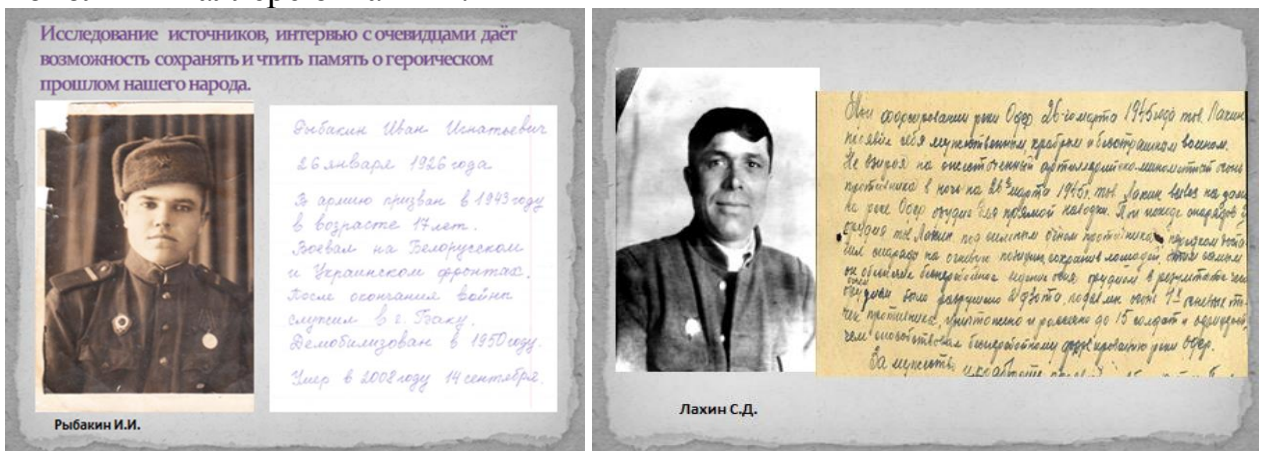 Исследование источников, интервью с очевидцами даёт
возможность сохранять и чтить память о героическом
прошлом нашего народа.
Рыбакин Иван Игнатьевич
26 января 1926 года
В армию призван в 1943 году
в возрасте 17 лет.
Воевал на Белорусском
и Украинском фронтах.
После окончания войны
служил в г. Баку.
Демобилизован в 1950 году.
Умер в 2008 году 14 сентября.
Рыбакин И.И.
При форсировании реки Одер 26-го марта 1945 года тов. Лахин
проявил себя мужественным храбрым и бесстрашным воином.
Не взирая на ожесточенный артиллерийско-минометный огонь
противника в ночь на 26 марта 1945г. тов. Лахин вывез на дамбу
на реке Одер орудие для прямой наводки. При подходе снарядов
орудия тов. Лахин под сильным огнем противника
снаряды на огневую позицию сохранив лошадей, этим самым
он обеспечил орудием в результате чего
было разрушено дзота, подавлен огонь огневых то-
чек противника, уничтожено и рассеяно до 15 солдат и офицеров,
чем способствовал форсированию реки Одер.
За мужество,
Лахин С.Д.